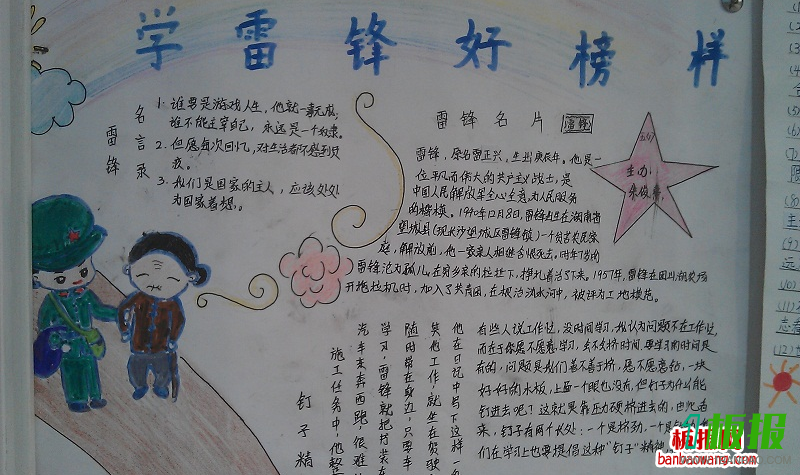 学雷锋好榜样
雷锋
名言录
1. 谁要是游戏人生,他就一事无成;
谁不能主宰自己,永远是一个奴隶。
2. 但愿每次回忆,对生活都不感到负
疚。
3. 我们是国家的主人,应该处处
为国家着想。
雷锋名片
雷锋,原名雷正兴,生肖庚辰年。他是一
位平凡而伟大的共产主义战士,是
中国人民解放军全心全意为人民服务
的楷模。1940年12月8日,雷锋出生在湖南省
望城县(现长沙望城区雷锋镇)一个贫苦农民家
庭,解放前,他一家亲人相继含恨死去。时年7岁的
雷锋沦为孤儿,在穷乡亲的拉扯下,挣扎着活了下来。1957年,雷锋在团山湖农场
开拖拉机时,加入了共青团,在根治沩水河中,被评为工地模范。
主办:
钉子精
施工任务中,他
汽车东奔西跑,很难
学习,雷锋就把书装在
随时带在身边,只要车
笑他在工作,就坐在驾驶
他在日记中写下这样
有些人说工作忙,没时间学习,我认为问题不在工作忙,
而在于你愿不愿意学习,会不会挤时间,要学习的时间是
有的,问题是我们善不善于挤,愿不愿意钻,一块
好好的木板,上面一个眼也没有,但钉子为什么能
钉进去呢?这就是靠压力硬挤进去的,由此看
来,钉子有两个长处:一个是挤劲,一个是
们在学习上也要提倡这种“钉子”精神
板报网
banbaowang.com
板报